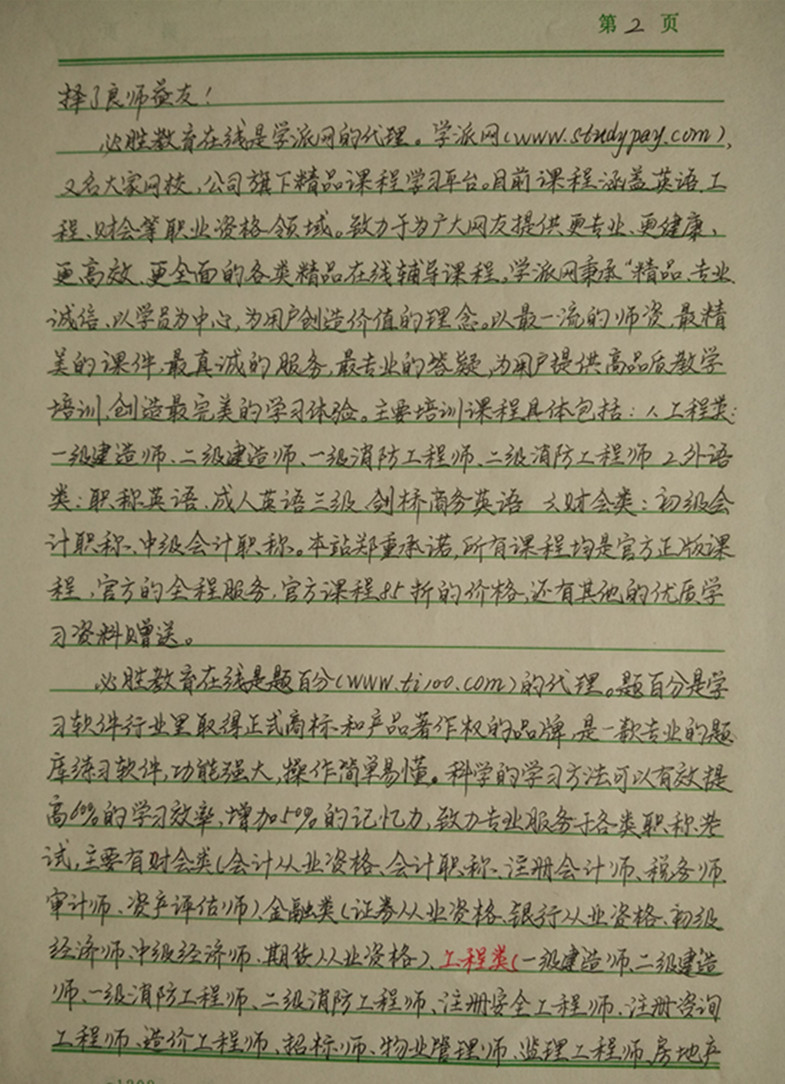 第2页
择了良师益友！
必胜教育在线是学派网的代理。学派网(www.studypay.com)，
又名大家网校，公司旗下精品课程学习平台。目前课程涵盖英语、工
程、财会等职业资格领域。致力于为广大网友提供更专业、更健康、
更高效、更全面的各类精品在线辅导课程。学派网秉承“精品、专业、
诚信、以学员为中心，为用户创造价值的理念。以最一流的师资，最精
美的课件，最真诚的服务，最专业的答疑，为用户提供高品质教学
培训，创造最完美的学习体验。主要培训课程具体包括：1.工程类：
一级建造师、二级建造师、一级消防工程师、二级消防工程师 2.外语
类：职称英语、成人英语三级、剑桥商务英语 3.财会类：初级会
计职称、中级会计职称。本站郑重承诺，所有课程均是官方正版课
程，官方的全程服务，官方课程85折的价格，还有其他的优质学
习资料赠送。
必胜教育在线是题百分(www.ti100.com)的代理。题百分是学
习软件行业里取得正式商标和产品著作权的品牌，是一款专业的题
库练习软件，功能强大，操作简单易懂。科学的学习方法可以有效提
高60%的学习效率，增加50%的记忆力，致力专业服务于各类职称考
试，主要有财会类(会计从业资格、会计职称、注册会计师、税务师、
审计师、资产评估师)、金融类(证券从业资格、银行从业资格、初级
经济师、中级经济师、期货从业资格)、工程类(一级建造师、二级建造
师、一级消防工程师、二级消防工程师、注册安全工程师、注册咨询
工程师、造价工程师、招标师、物业管理师、监理工程师、房地产